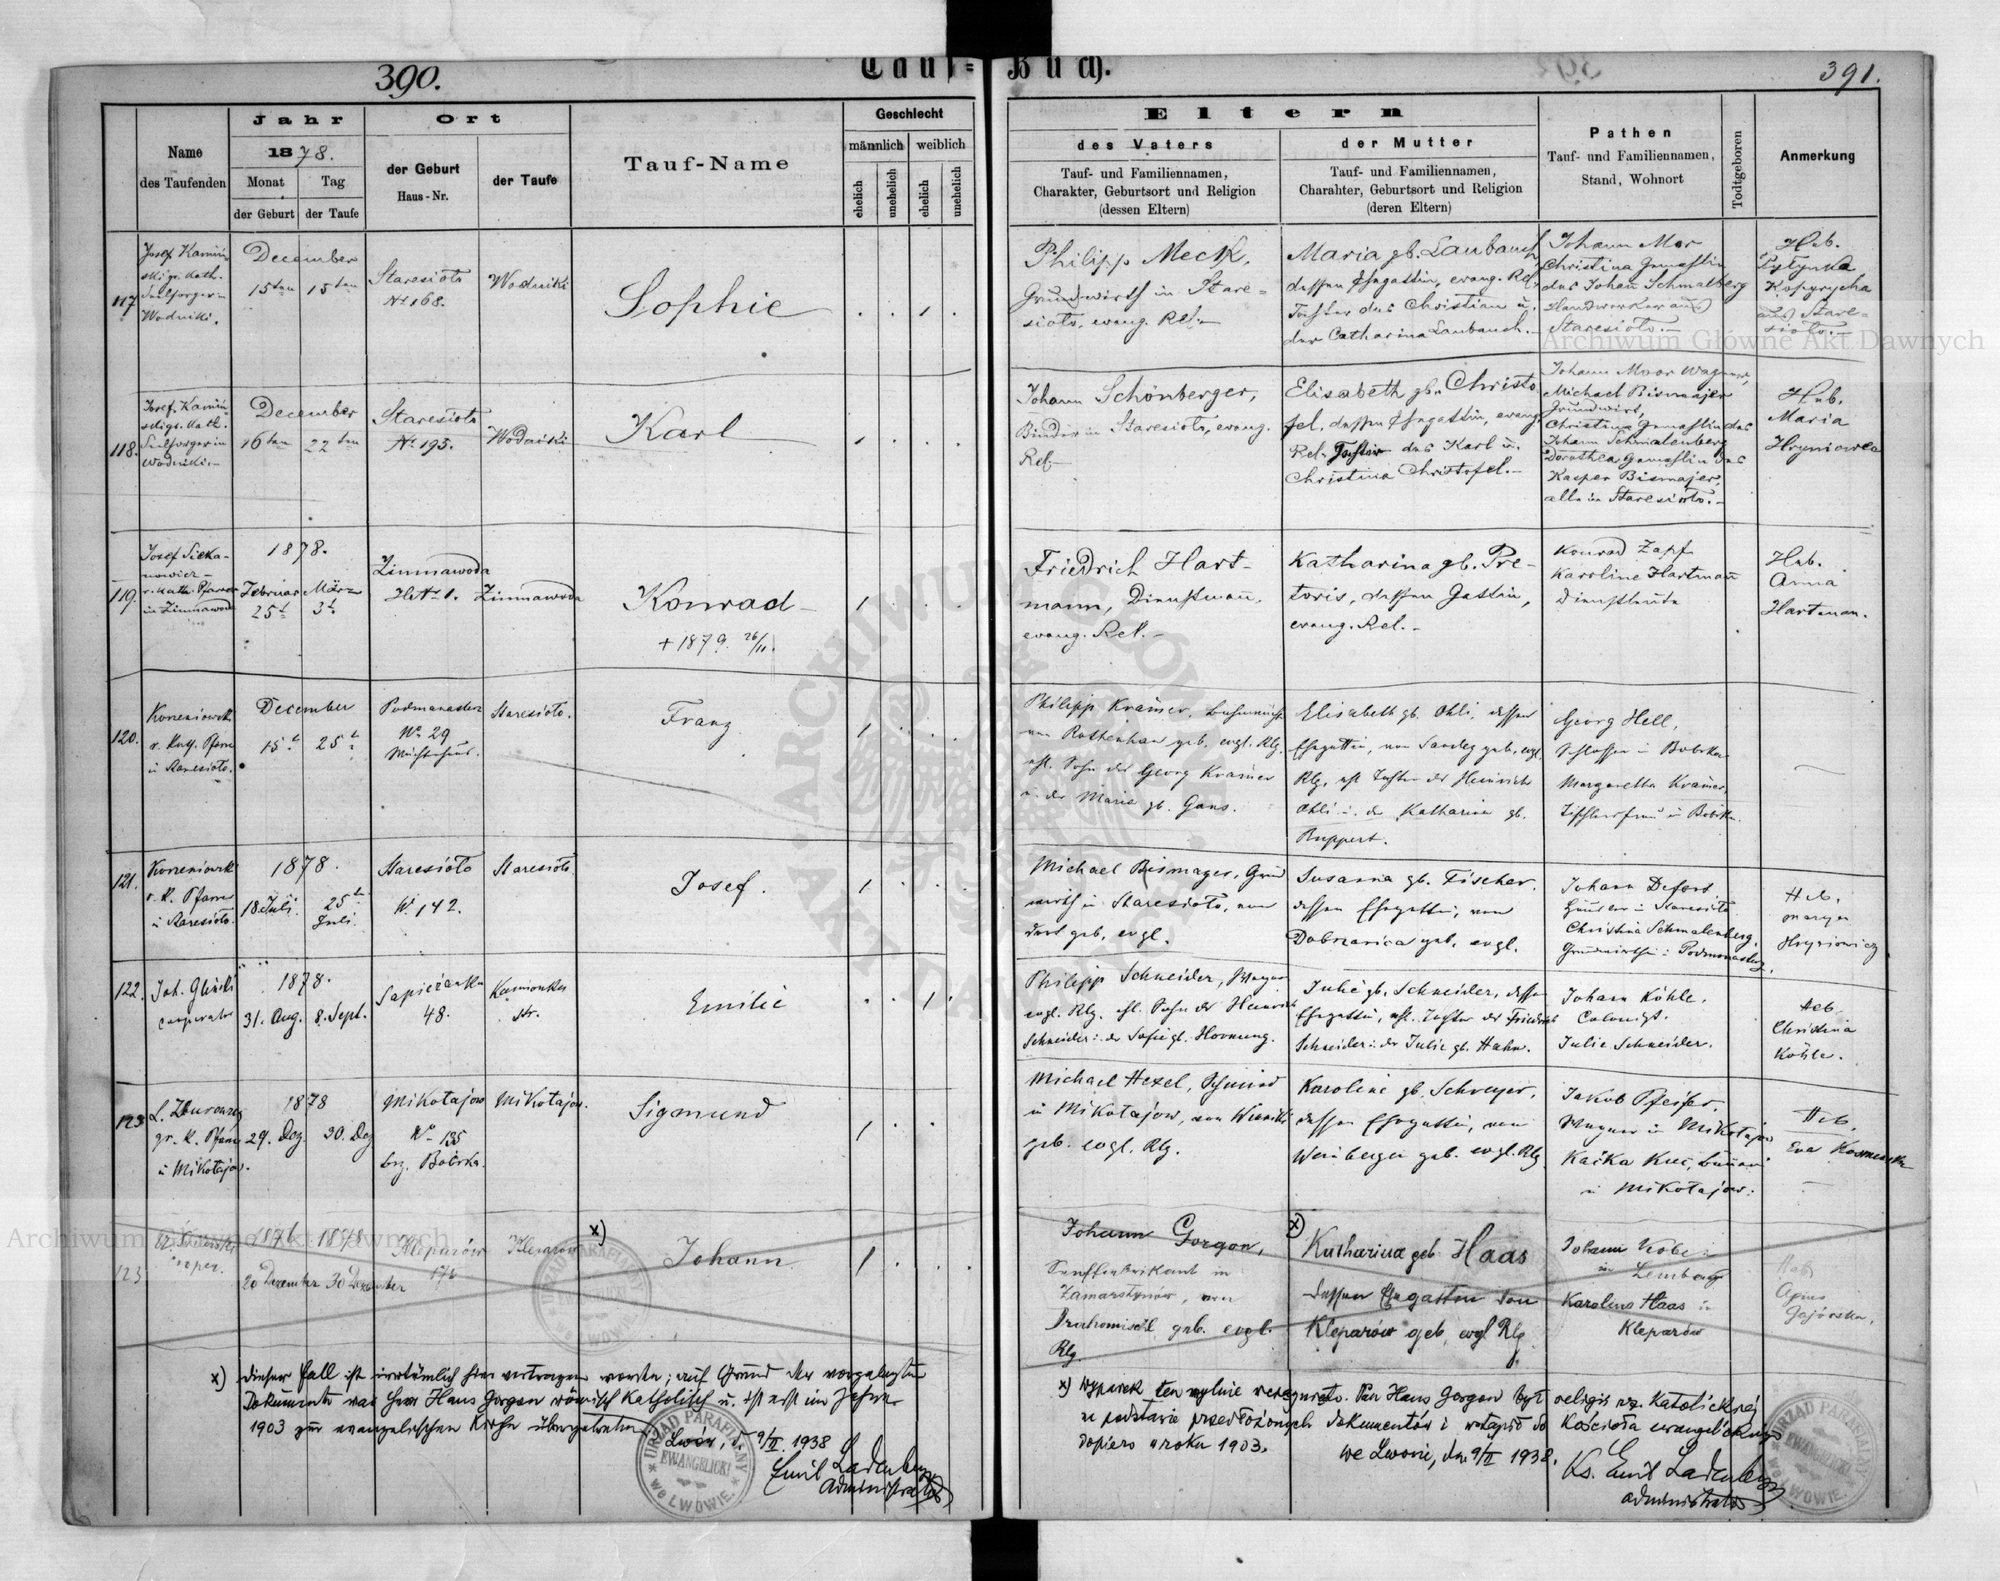 390.
Tauf=
Buch.
391.
Name
des Taufenden
Jahr
1878.
Monat
Tag
der Geburt
der Taufe
Ort
der Geburt
Haus-Nr.
der Taufe
Tauf-Name
Geschlecht
männlich
weiblich
ehelich
unehelich
ehelich
unehelich
Eltern
des Vaters
Tauf- und Familiennamen,
Charakter, Geburtsort und Religion
(dessen Eltern)
der Mutter
Tauf- und Familiennamen,
Charahter, Geburtsort und Religion
(deren Eltern)
Pathen
Tauf- und Familiennamen,
Stand, Wohnort
Todtgeboren
Anmerkung
117
Josef Kamiń-
ski gr. kath.
Seelsorger in
Wodniki.
December
15ten 15ten
Staresioto
No 168.
Wodniki
Sophie
Philipp Meck,
Grundwirth in Stare=
sioto, evang. Rel.
Maria gb. Laubauch,
dessen Ehegattin, evang. Rel.
Tochter des Christian u.
der Catharina Laubauch.
Johann Mor
Christina Gemahlin
des Johan Schmalberg
Handwerker aus
Staresioto.
Heb.
Kopyrycha
aus Stare=
sioto.
118.
Josef Kamiń-
ski gr. kath.
Seelsorger in
Wodniki
December
16ten 22ten
Staresioto
No 195.
Wodniki
Karl
Johann Schönberger,
Binder in Staresioto, evang.
Rel.
Elisabeth gb. Christo
fel, dessen Ehegattin, evang.
Rel. Tochter des Karl u.
Christina Christofel.
Johann Moor Wagner,
Michael Bismajer
Grundwirt,
Christina Gemahlin des
Johann Schmalenberg
Dorothea Gemahlin des
Kasper Bismajer,
alle in Staresioto.
Heb.
Maria
Hryniowca
119.
Josef Sieka-
nowicz
r. kath. Pfarrer
in Zimnawoda
1878.
Februar März
25t 3t
Zimnawoda
HNo 1.
Zimnawoda
Konrad
+ 1879 26/11.
Friedrich Hart-
mann, Dienstmann,
evang. Rel.
Katharina gb. Pre-
toris, dessen Gattin,
evang. Rel.
Konrad Zapf
Karoline Hartmann
Dienstleute
Heb.
Anna
Hartman.
120.
Korzeniowski
r. Kath. Pfarrer
in Staresioto.
December
15t 25t
Podmanaster
No 29
Staresioto.
Franz
Philipp Kramer,
von Rottenhan geb. evgl. Rlg.
ehl. Sohn des Georg Kramer
u. der Maria gb. Gans.
Elisabeth gb. Ohli, dessen
Ehegattin, von Sandez geb. evgl.
Rlg, ehl. Tochter des Heinrich
Ohli u. der Katharina gb.
Ruppert.
Georg Hell,
Schlosser in Bobrka
Margaretha Kramer,
Tischlersfrau in Bobrka.
121.
Korzeniowski
r. K. Pfarrer
in Staresioto.
1878.
18 Juli. 25t Juli.
Staresioto
No 142.
Staresioto.
Josef.
Michael Bismayer, Grund
wirth in Staresioto, von
dort geb, evgl.
Susanna gb. Fischer.
dessen Ehegattin, von
Dobrzanica geb. evgl.
Johann Deford
in Staresioto
Christina Schmalenberg,
Grundwirthin in Podmonastez,
Heb.
Marya
Hryniowicz
122.
Joh. Gliński
cooperator
1878.
31. Aug. 8. Sept.
Sapieżanka
48.
Kamionka
str.
Emilie
Philipp Schneider, Wagner
evgl. Rlg. ehl. Sohn des Heinrich
Schneider u. der Sofie gb. Hornung.
Julie gb. Schneider, dessen
Ehegattin, ehl. Tochter des Friedrich
Schneider u. der Julie gb. Hahn.
Johann Köhle,
Colonist.
Julie Schneider.
Heb.
Christina
Köhle.
123
gr. K. Pfarrer
in Mikołajow.
1878
29. Dez. 30. Dez
Mikołajow
No 135
bez. Bobrka.
Mikołajow.
Sigmund
Michael Hezel, Schmied
in Mikołajow, von
geb. evgl. Rlg.
Karoline gb. Schreyer,
dessen Ehegattin, von
Weinbergen geb. evgl. Rlg
Jakob Pfeifer,
Wagner in Mikołajow
Kaśka Kuc, Bäuerin
in Mikołajow.
Heb.
Eva
123
1876 1878
20 Dezember 30 Dezember
Kleparów
176
Kleparów
x)
Johann.
Johann Gorgon,
Senffabrikant in
Zamarstynów, von
geb. evgl.
Rlg.
x)
Katharina geb Haas
dessen Ehegattin von
Kleparów geb, evgl Rlg.
Johann Kobe
in Lemberg
Karoline Haas in
Kleparów
Heb
Agnes
Gajórska,
x) Dieser Fall ist irrtümlich hier eingetragen worden; auf Grund der vorgelegten
Dokumente war Herr Hans Gorgon römisch katholisch u. ist erst im Jahre
1903 zur evangelischen Kirche übergetreten
Lwów, d. 9/II. 1938
Emil Ladenberger
Administrator
x) Wypadek ten mylnie wciągnięto. Pan Hans Gorgon był religii rz. katolickiej
na podstawie przedłożonych dokumentów i wstąpił do Kościoła ewangelickiego
dopiero w roku 1903.
we Lwowie, dn. 9/II 1938.
Ks. Emil Ladenberger
administrator
URZĄD PARAFIALNY
EWANGELICKI
we LWOWIE
URZĄD PARAFIALNY
EWANGELICKI
we LWOWIE.
URZĄD PARAFIALNY
EWANGELICKI
we LWOWIE.
Archiwum Główne Akt Dawnych
Archiwum Główne Akt Dawnych
ARCHIWUM GŁÓWNE AKT DAWNYCH